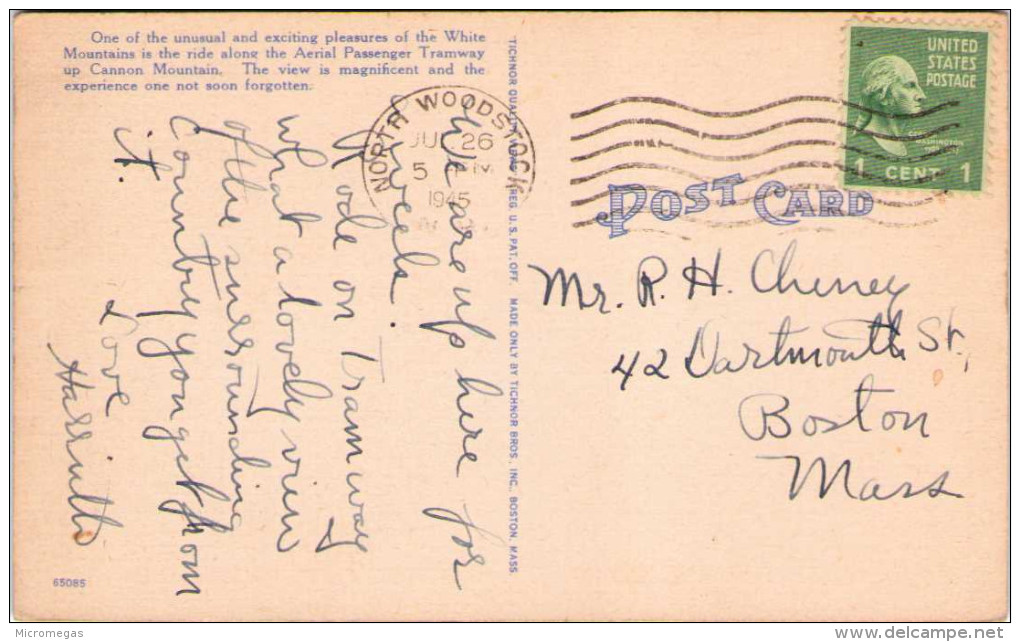 One of the unusual and exciting pleasures of the White
Mountains is the ride along the Aerial Passenger Tramway
up Cannon Mountain. The view is magnificent and the
experience one not soon forgotten.
We are up here for
a week.
Rode on Tramway
what a lovely view
of the surrounding
Country you get from
it.
Love
Harriett
65085
TICHNOR QUALITY VIEWS REG. U.S. PAT. OFF. MADE ONLY BY TICHNOR BROS. INC., BOSTON, MASS.
NORTH WOODSTOCK
JUL 26
5 PM
1945
UNITED
STATES
POSTAGE
WASHINGTON
1 CENT 1
POST CARD
Mr. R. H. Cheney
42 Dartmouth St.,
Boston
Mass
Micromegas
delcampe.net